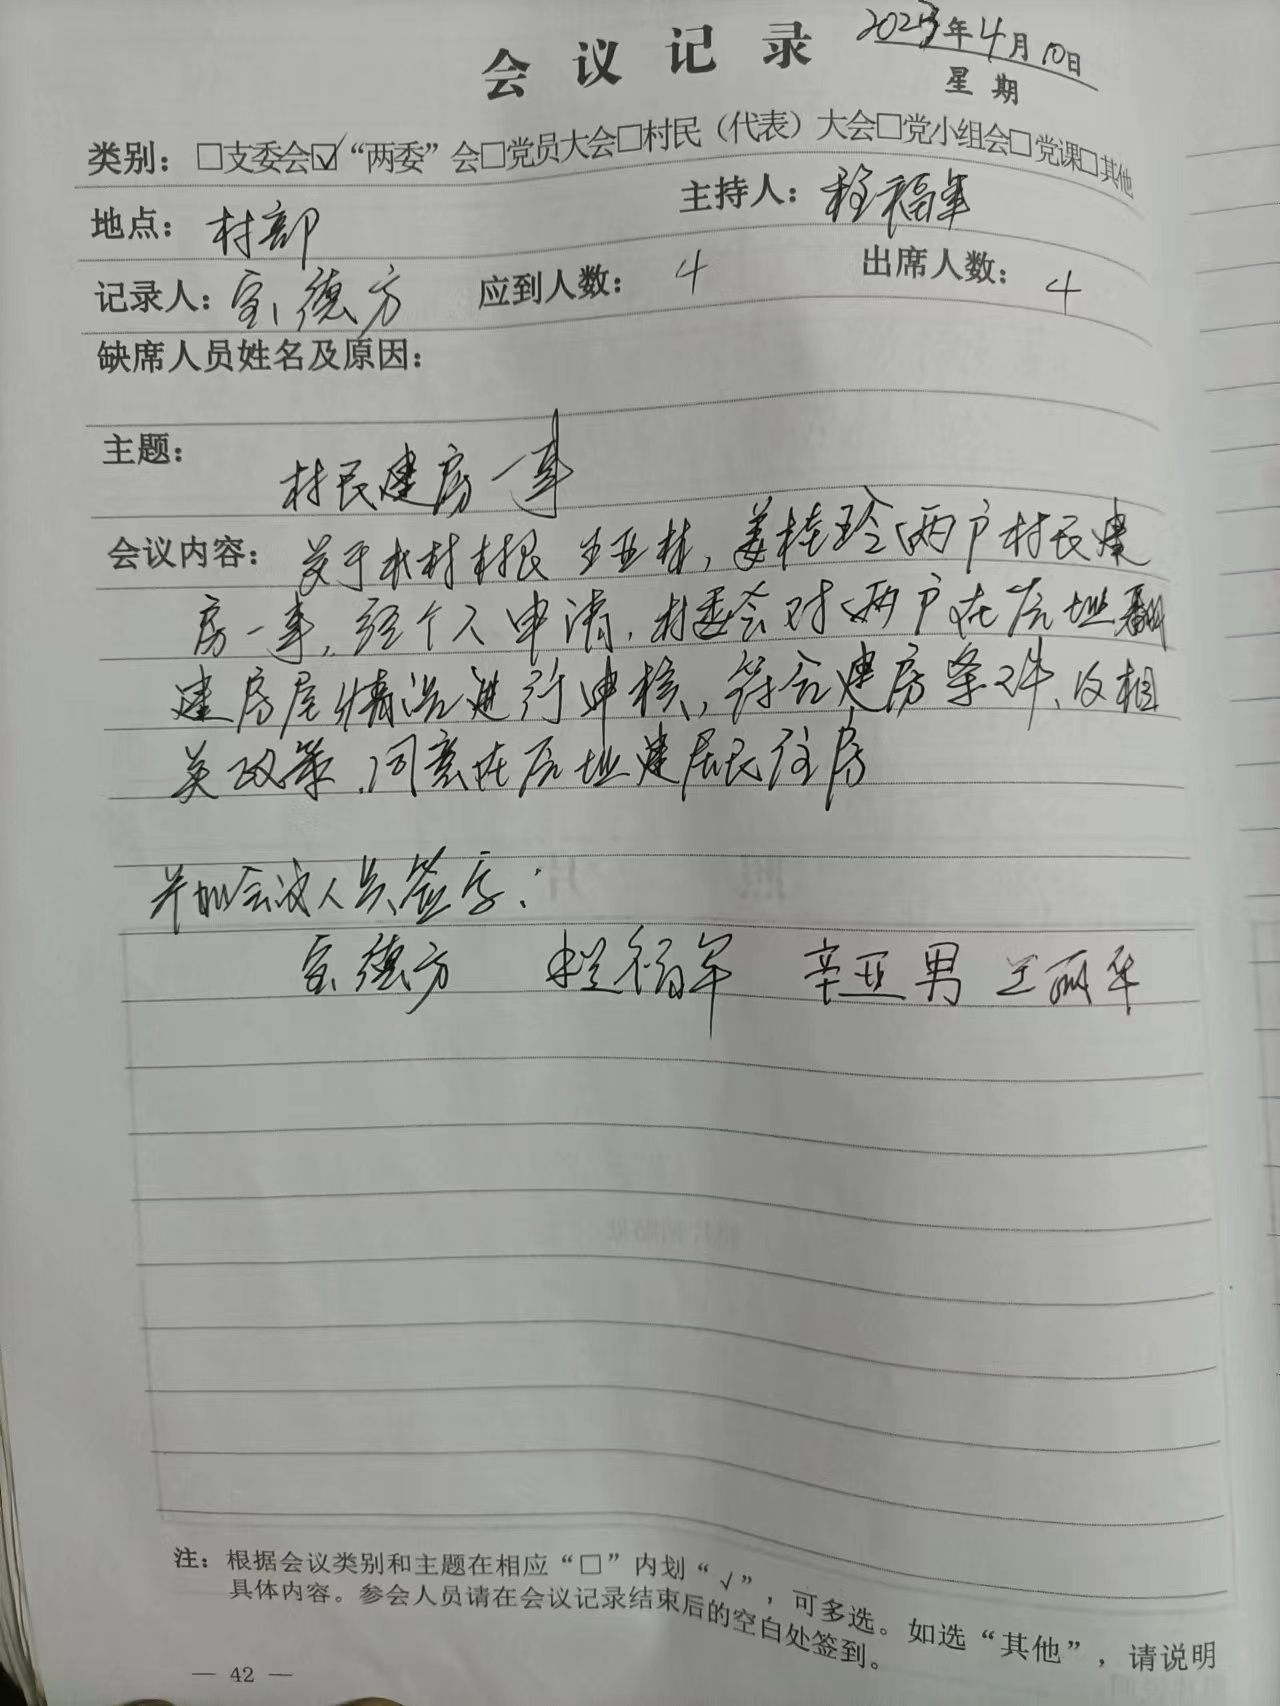 会议记录
2023年4月10日
星期
类别：□支委会☑“两委”会□党员大会□村民（代表）大会□党小组会□党课□其他
地点：村部 主持人：程福军
记录人：宝德方 应到人数：4 出席人数：4
缺席人员姓名及原因：
主题：
村民建房一事
会议内容：关于本村村民 亚林，姜桂玲两户村民建
房一事，经个人申请，村委会对两户在原址翻
建房屋情况进行审核，符合建房条件、及相
关政策，同意在原址建居民住房
参加会议人员签字：
宝德方 程福军 辛亚男 王丽华
注：根据会议类别和主题在相应“□”内划“√”，可多选。如选“其他”，请说明
具体内容。参会人员请在会议记录结束后的空白处签到。
— 42 —